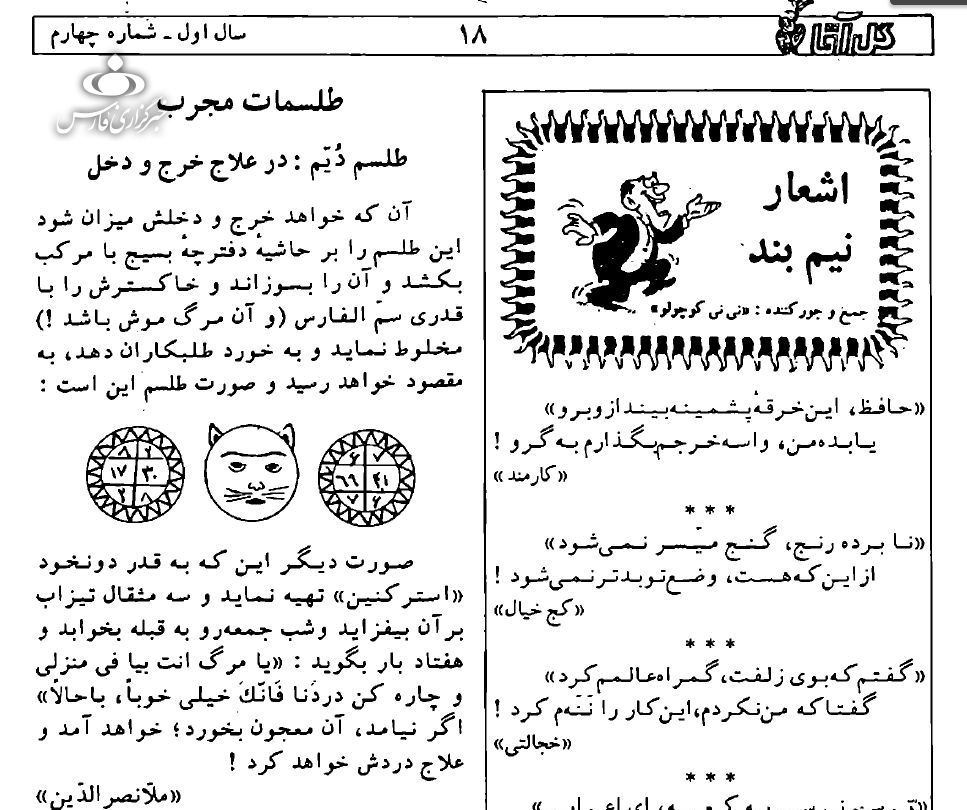 گل آقا
۱۸
سال اول ـ شماره چهارم
خبرگزاری فارس
اشعار
نیم بند
جمع و جور کننده : «نی نی کوچولو»
«حافظ، این خرقهٔ پشمینه بینداز و برو»
یا بده من، واسه خرجم بگذارم به گرو !
«کارمند»
* * *
«نا برده رنج، گنج میّسر نمی‌شود»
از این که هست، وضع تو بدتر نمی‌شود !
«کج خیال»
* * *
«گفتم که بوی زلفت، گمراه عالمم کرد»
گفتا که من نکردم، این کار را نَنَه‌م کرد !
«خجالتی»
* * *
طلسمات مجرب
طلسم دُیّم : در علاج خرج و دخل
آن که خواهد خرج و دخلش میزان شود
این طلسم را بر حاشیهٔ دفترچهٔ بسیج با مرکب
بکشد و آن را بسوزاند و خاکسترش را با
قدری سمّ الفارس (و آن مرگ موش باشد !)
مخلوط نماید و به خورد طلبکاران دهد، به
مقصود خواهد رسید و صورت طلسم این است :
۸ ۲
۱۷ ۳۰
۲ ۸
۶ ۷
۶۶ ۴۱
۷ ۶
صورت دیگر این که به قدر دونخود
«استرکنین» تهیه نماید و سه مثقال تیزاب
بر آن بیفزاید و شب جمعه رو به قبله بخوابد و
هفتاد بار بگوید : «یا مرگ انت بیا فی منزلی
و چاره کن دردنا فَانّكَ خیلی خوباً، باحالاً»
اگر نیامد، آن معجون بخورد؛ خواهد آمد و
علاج دردش خواهد کرد !
«ملّانصرالدّین»